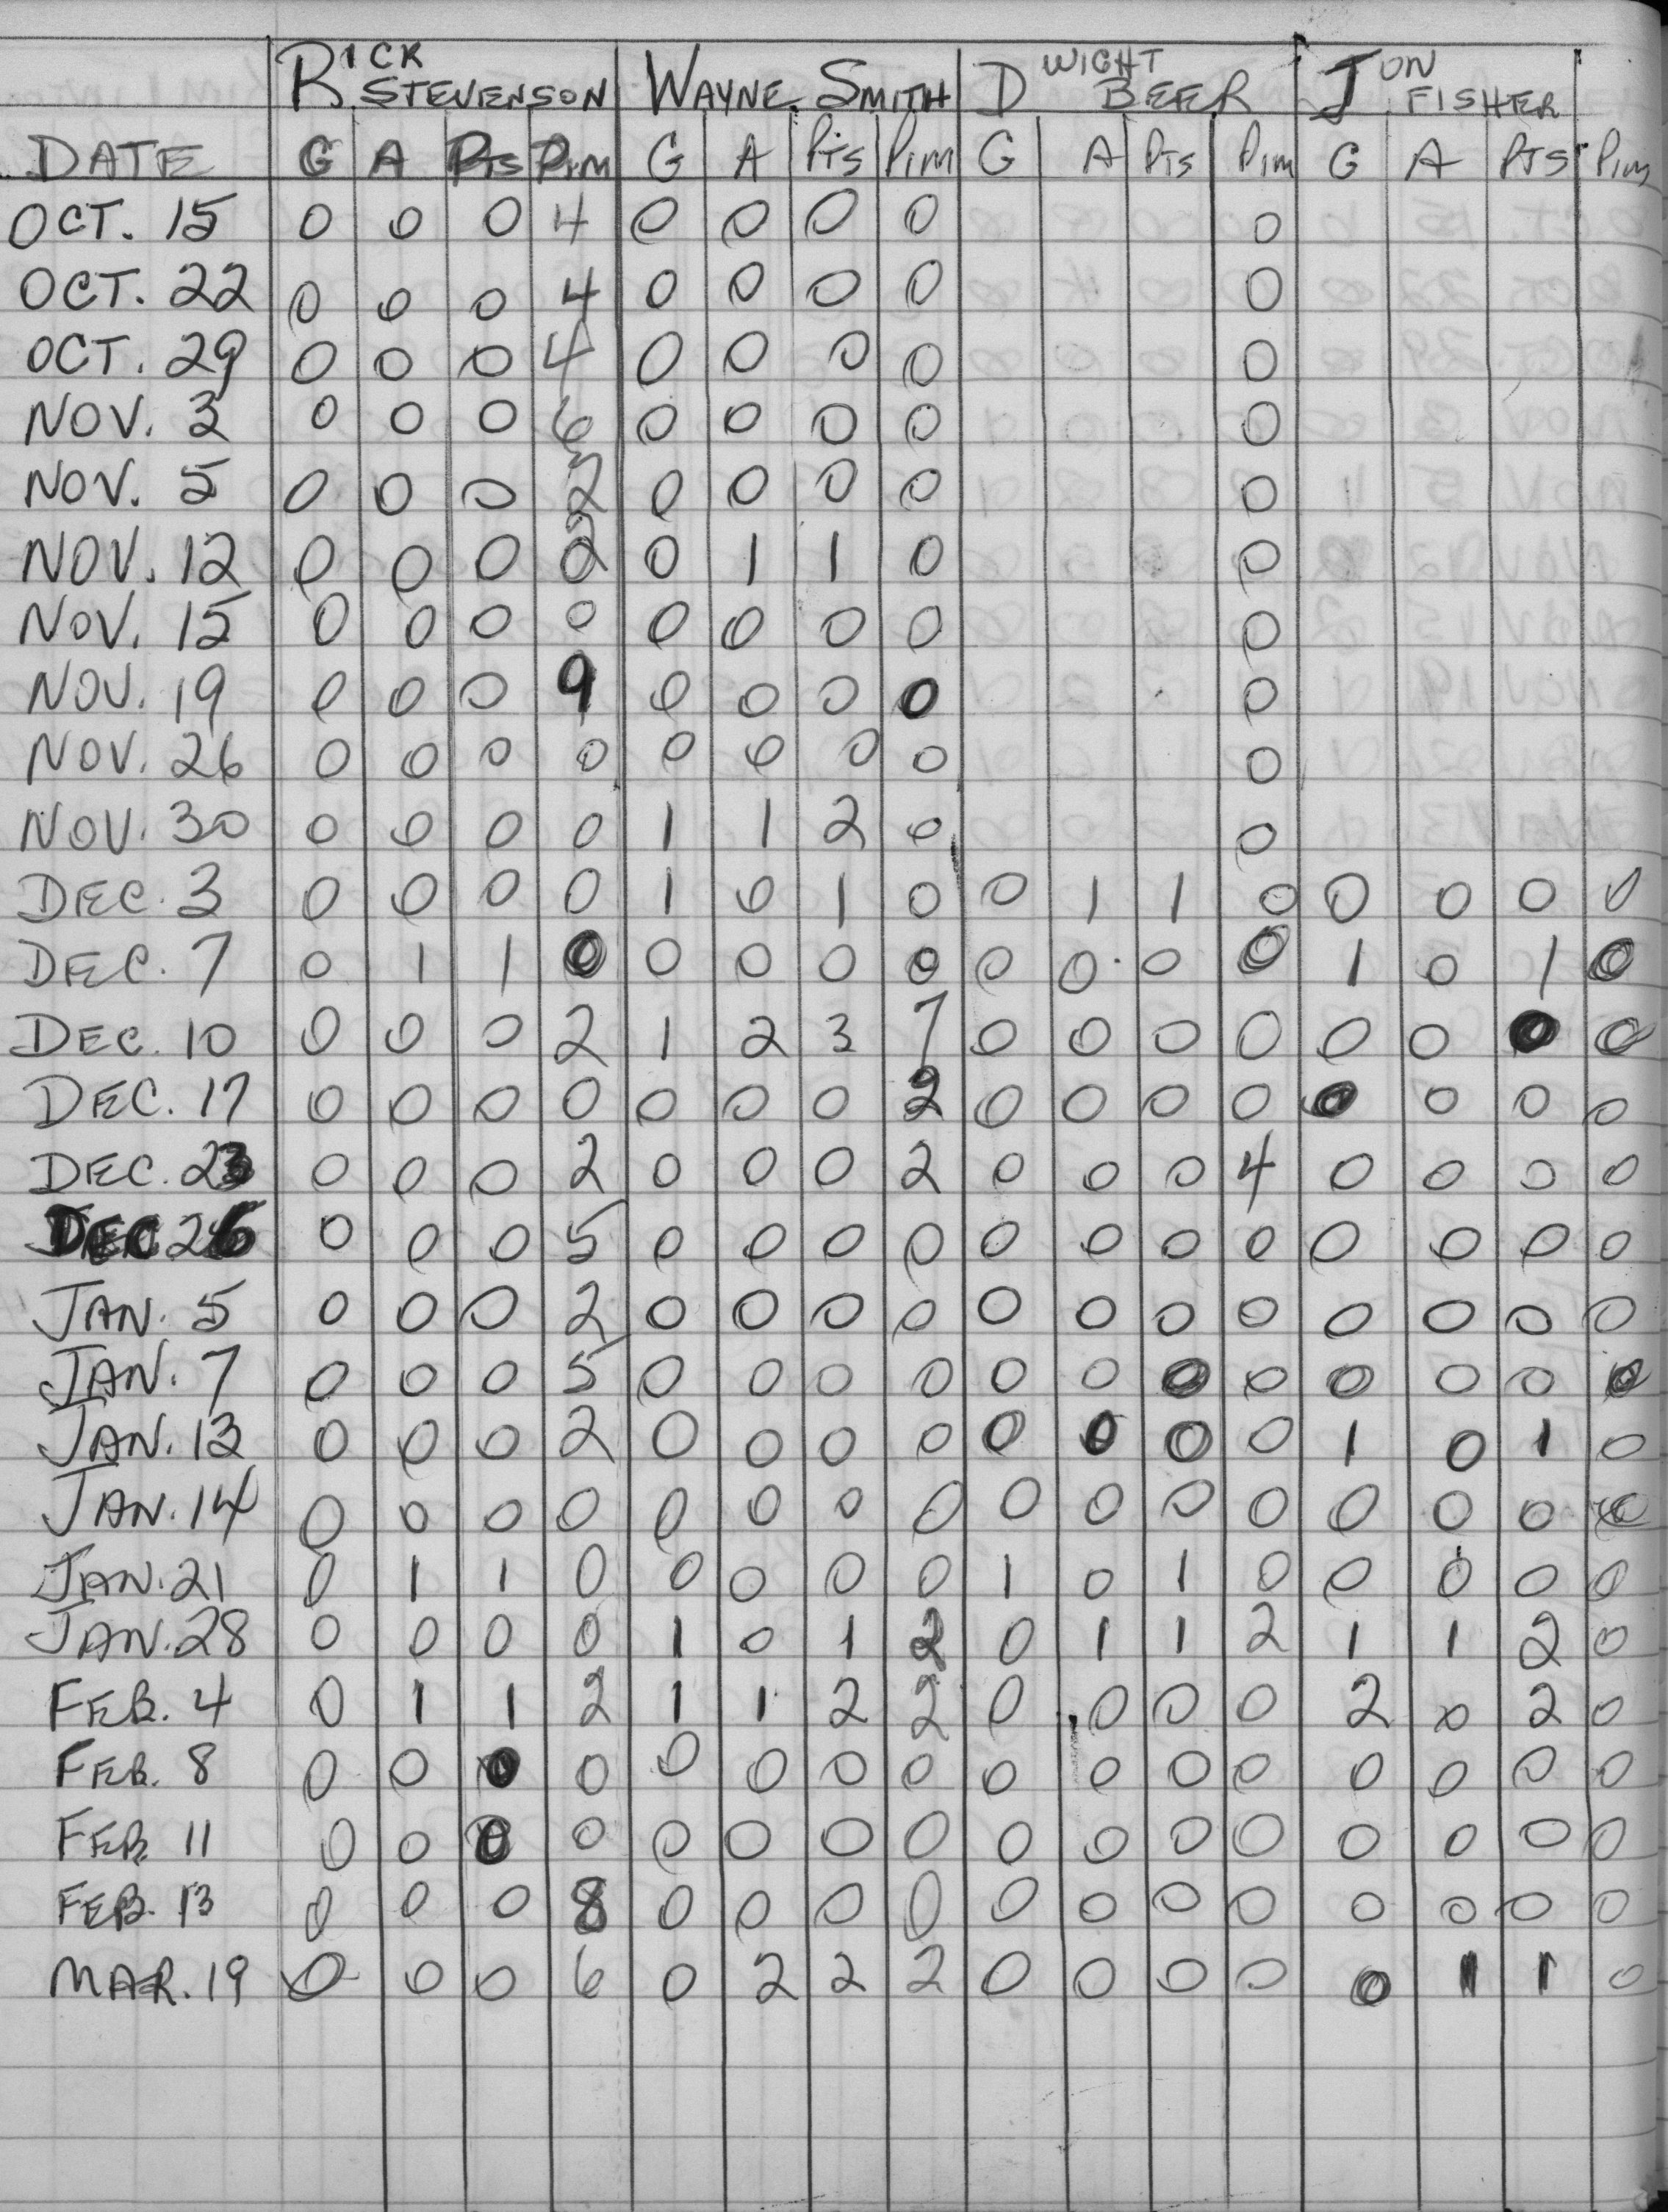 RICK STEVENSON WAYNE SMITH DWIGHT BEER JON FISHER
DATE G A Pts Pim G A Pts Pim G A Pts Pim G A Pts Pim
OCT. 15 0 0 0 4 0 0 0 0 0
OCT. 22 0 0 0 4 0 0 0 0 0
OCT. 29 0 0 0 4 0 0 0 0 0
NOV. 3 0 0 0 6 0 0 0 0 0
NOV. 5 0 0 0 2 0 0 0 0 0
NOV. 12 0 0 0 0 1 1 0 0
NOV. 15 0 0 0 0 0 0 0 0 0
NOV. 19 0 0 0 9 0 0 0 0 0
NOV. 26 0 0 0 0 0 0 0 0 0
NOV. 30 0 0 0 0 1 1 2 0 0
DEC. 3 0 0 0 0 1 0 1 0 0 1 1 0 0 0 0 0
DEC. 7 0 1 1 0 0 0 0 0 0 0 0 0 1 0 1 0
DEC. 10 0 0 0 2 1 2 3 7 0 0 0 0 0 0 0 0
DEC. 17 0 0 0 0 0 0 0 2 0 0 0 0 0 0 0 0
DEC. 23 0 0 0 2 0 0 0 2 0 0 0 4 0 0 0 0
DEC 26 0 0 0 5 0 0 0 0 0 0 0 0 0 0 0 0
JAN. 5 0 0 0 2 0 0 0 0 0 0 0 0 0 0 0 0
JAN. 7 0 0 0 5 0 0 0 0 0 0 0 0 0 0 0 0
JAN. 13 0 0 0 2 0 0 0 0 0 0 0 0 1 0 1 0
JAN. 14 0 0 0 0 0 0 0 0 0 0 0 0 0 0 0
JAN. 21 0 1 1 0 0 0 0 0 1 0 1 0 0 0 0 0
JAN. 28 0 0 0 0 1 0 1 2 0 1 1 2 1 1 2 0
FEB. 4 0 1 1 2 1 1 2 2 0 0 0 0 2 0 2 0
FEB. 8 0 0 0 0 0 0 0 0 0 0 0 0 0 0 0 0
FEB. 11 0 0 0 0 0 0 0 0 0 0 0 0 0 0 0 0
FEB. 13 0 0 0 8 0 0 0 0 0 0 0 0 0 0 0 0
MAR. 19 0 0 0 6 0 2 2 2 0 0 0 0 0 1 1 0